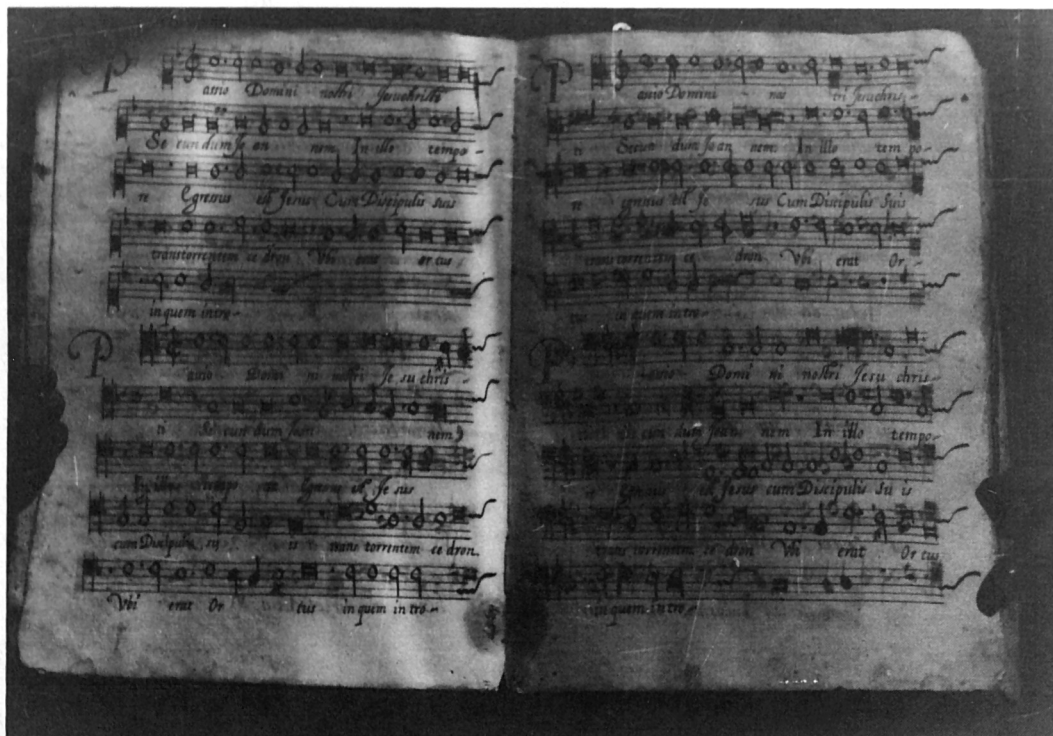 P
assio Domini nostri Jesuchristi
Se cundum Jo an nem In illo tempo-
re Egressus est Jesus Cum Discipulis suis
trans torrentem ce dron Vbi erat or tus
in quem intro-
P
assio Domi ni nostri Je su chris-
ti Se cun dum Joan nem
In illo tempo re Egressus est Je sus
cum Discipulis su is trans torrentem ce dron
Vbi erat Or tus in quem in tro-
P
assio Domini nos tri Jesuchris-
ti Secun dum Joan nem In illo tem po-
re egressus est Je sus Cum Discipulis Suis
trans torrentem ce dron Vbi erat Or-
tus in quem in tro-
P
assio Domi ni nostri Jesu chris-
cun dum Joan nem In illo tempo-
re Egressus est Jesus cum Discipulis Su is
trans torrentem ce dron Vbi erat Or tus
in quem in tro-